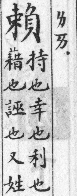 ㄌㄞ.
賴
持也幸也利也
藉也誣也又姓